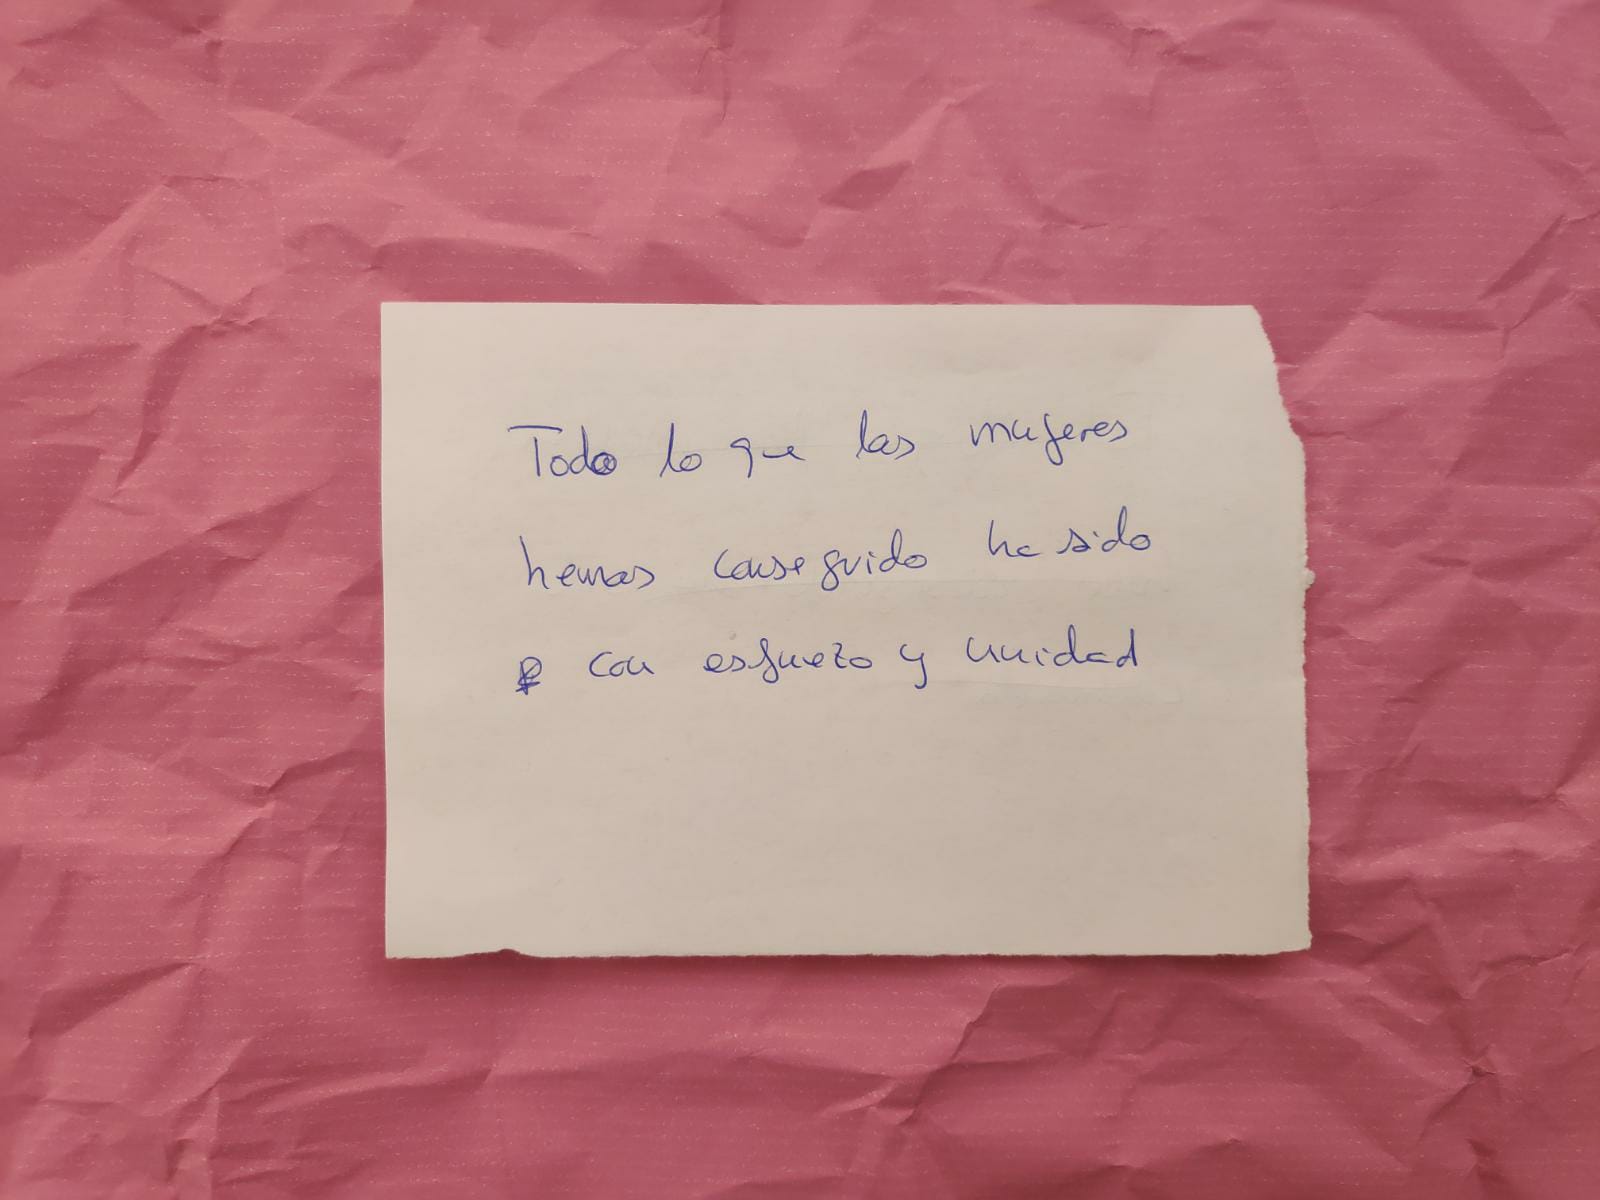 Todo lo que las mujeres
hemos conseguido ha sido
con esfuezo y unidad